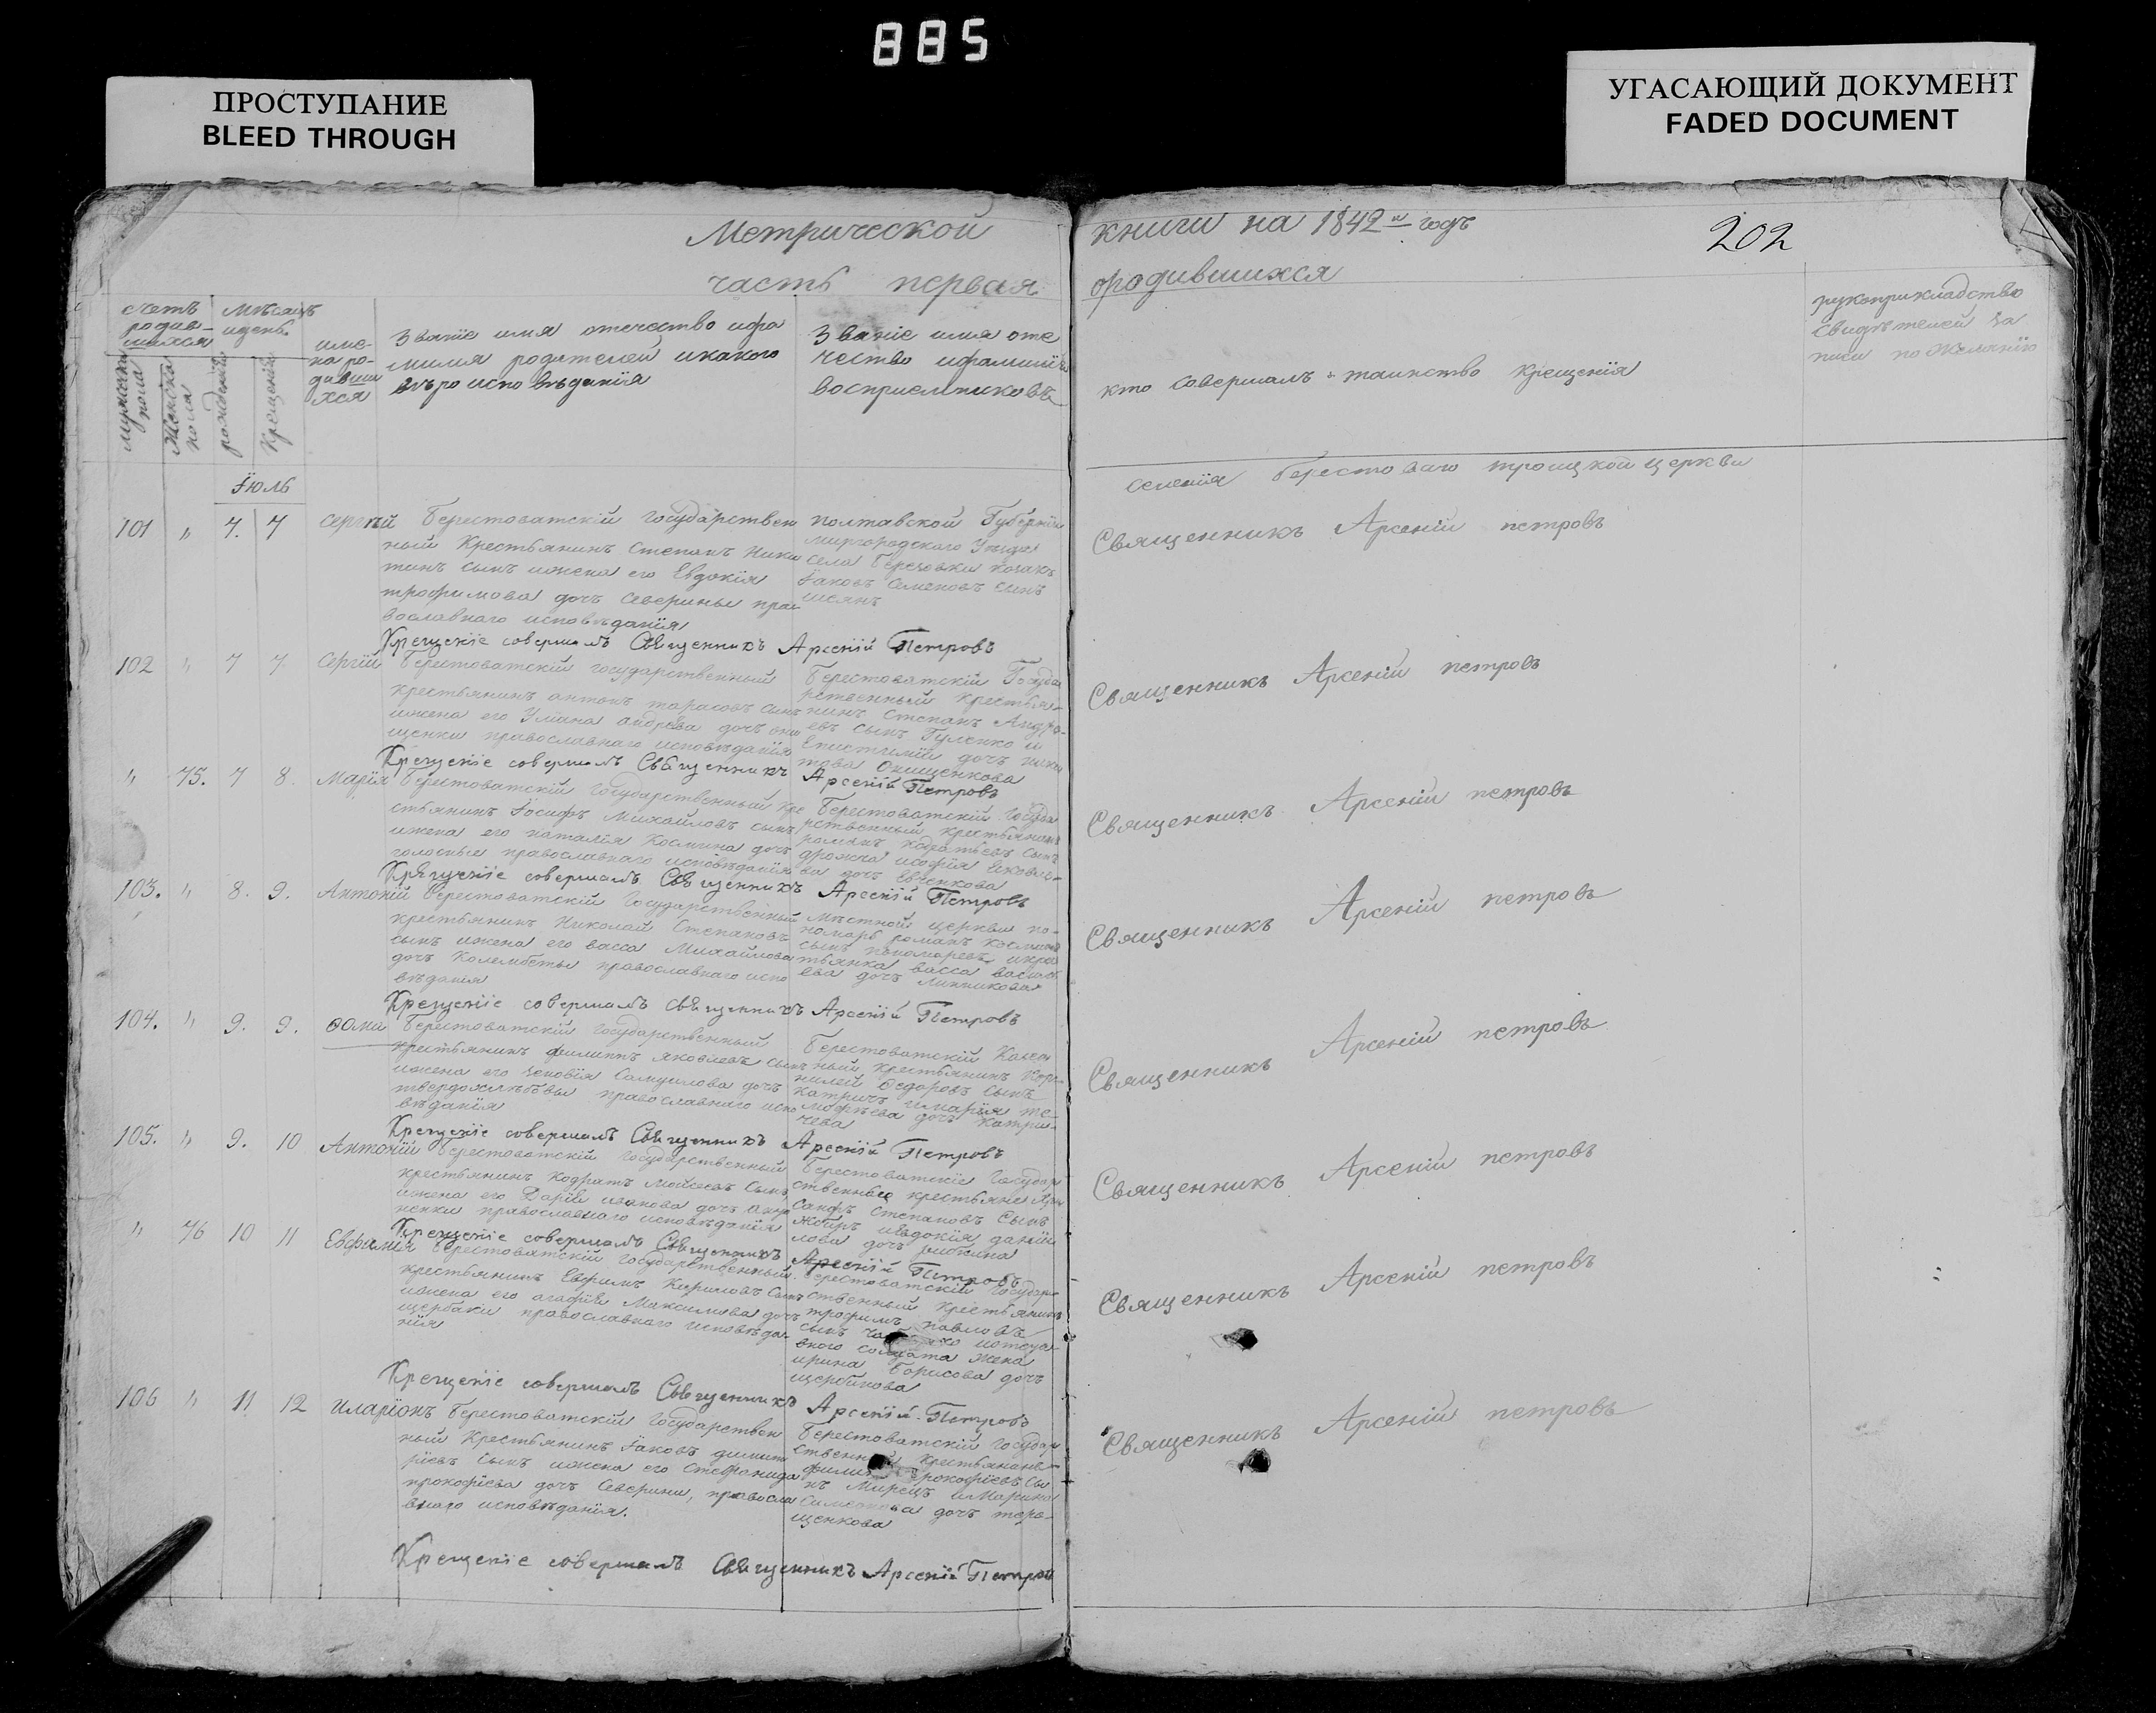 885
ПРОСТУПАНИЕ
BLEED THROUGH
УГАСАЮЩИЙ ДОКУМЕНТ
FADED DOCUMENT
Метрической книги на 1842й годъ
202
часть первая ородившихся
счетъ родив-шихся
мужеска пола
Женска пола
Мѣсяцъ идень
рожденія
Крещенія
име-на ро-дивши хся
Званіе имя отечество ифа
милія родителей икакого
вѣро исповѣданія
Званіе имя оте
чество ифамилія
воспріемниковъ
кто совершалъ таинство крещенія
рукоприкладство
свидѣтелей за
писи по желанію
Іюль
селенія Берестоваго троицкой церкви
101 " 7. 7 Сергѣй
Берестоватскій государствен
ный Крестьянинъ Степанъ Ники
тинъ сынъ ижена его Евдокія
трофимова дочъ Северины пра
вославнаго исповѣданія
полтавской Губерніи
миргородского Уѣзда
села Березовки козакъ
Іаковъ Семеновъ сынъ
Священникъ Арсеній петровъ
Крещеніе совершалъ Священникъ Арсеній Петровъ
102 " 7 7 Сергій
Берестоватскій государственный
крестьянинъ антонъ тарасовъ сынъ
ижена его Улиана андреева дочъ они
щенки православнаго исповѣданія
Берестоватскій Госуда
рственный крестья-
нинъ Степанъ Андре-
евъ сынъ Гуленко и
Епистимія дочъ ники
това Онищенкова
Священникъ Арсеній петровъ
Крещеніе совершалъ Священникъ Арсеній Петровъ
" 75. 7 8. Марія
Берестоватскій государственный кре
стьянинъ Іосифъ Михайловъ сынъ
ижена его наталія Космина дочъ
православнаго исповѣданія
Берестоватскій Госуда
рственный крестьянинъ
романъ сынъ
исофія яковле-
ва дочъ Евченкова
Священникъ Арсеній петровъ
Крещеніе совершалъ Священникъ Арсеній Петровъ
103. " 8. 9. Антоній
Берестоватскій Государственный
крестьянинъ Николай Степановъ
сынъ ижена его васса Михайлова
дочъ православнаго испо
вѣданія
мѣстной церкви по-
номарь романъ Космина
сынъ пономаревъ икрес
тьянка васса васил
ева дочъ
Священникъ Арсеній петровъ
Крещеніе совершалъ священникъ Арсеній Петровъ
104. " 9. 9. Ѳома
Берестоватскій государственный
крестьянинъ филиппъ яковлевъ сынъ
ижена его зеновія Самуилова дочъ
твердохлѣбовы православнаго испо
вѣданія
Берестоватскій Казен
ный крестьянинъ Кор-
нилей Ѳедоровъ сынъ
Катричъ имарія ти-
мофѣева дочъ Катри-
чева
Священникъ Арсеній петровъ
Крещеніе совершалъ Священникъ Арсеній Петровъ
105. " 9. 10 Антоній
Берестоватскій государственный
крестьянинъ Кодратъ Мойсеевъ сынъ
ижена его Дарія иванова дочъ
православнаго исповѣданія
Берестоватскіе Государ
ственные крестьяне
Степановъ Сынъ
иевдокія дании
лова дочъ
Священникъ Арсеній петровъ
Крещеніе совершалъ Священникъ Арсеній Петровъ
" 76 10 11 Евфимія
Берестоватскій государственный
крестьянинъ Евфимъ Кириловъ сынъ
ижена его агафія Максимова дочъ
щербаки православнаго исповѣда
нія
Берестоватскій Государ
ственный крестьянинъ
трофимъ павловъ
сынъ
солдата жена
ирина Борисова дочъ
щербинова
Священникъ Арсеній петровъ
Крещеніе совершалъ Священникъ Арсеній Петровъ
106 " 11 12 Иларіонъ
Берестоватскій Государствен
ный Крестьянинъ Іаковъ димит
ріевъ сынъ ижена его Стефанида
прокофіева дочъ Северины, правосла
внаго исповѣданія.
Берестоватскій Государ
ственный крестьянинъ
прокофіевъ сы
нъ Мирецъ иМарина
дочъ тере-
щенкова
Священникъ Арсеній петровъ
Крещеніе совершалъ Священникъ Арсеній Петров